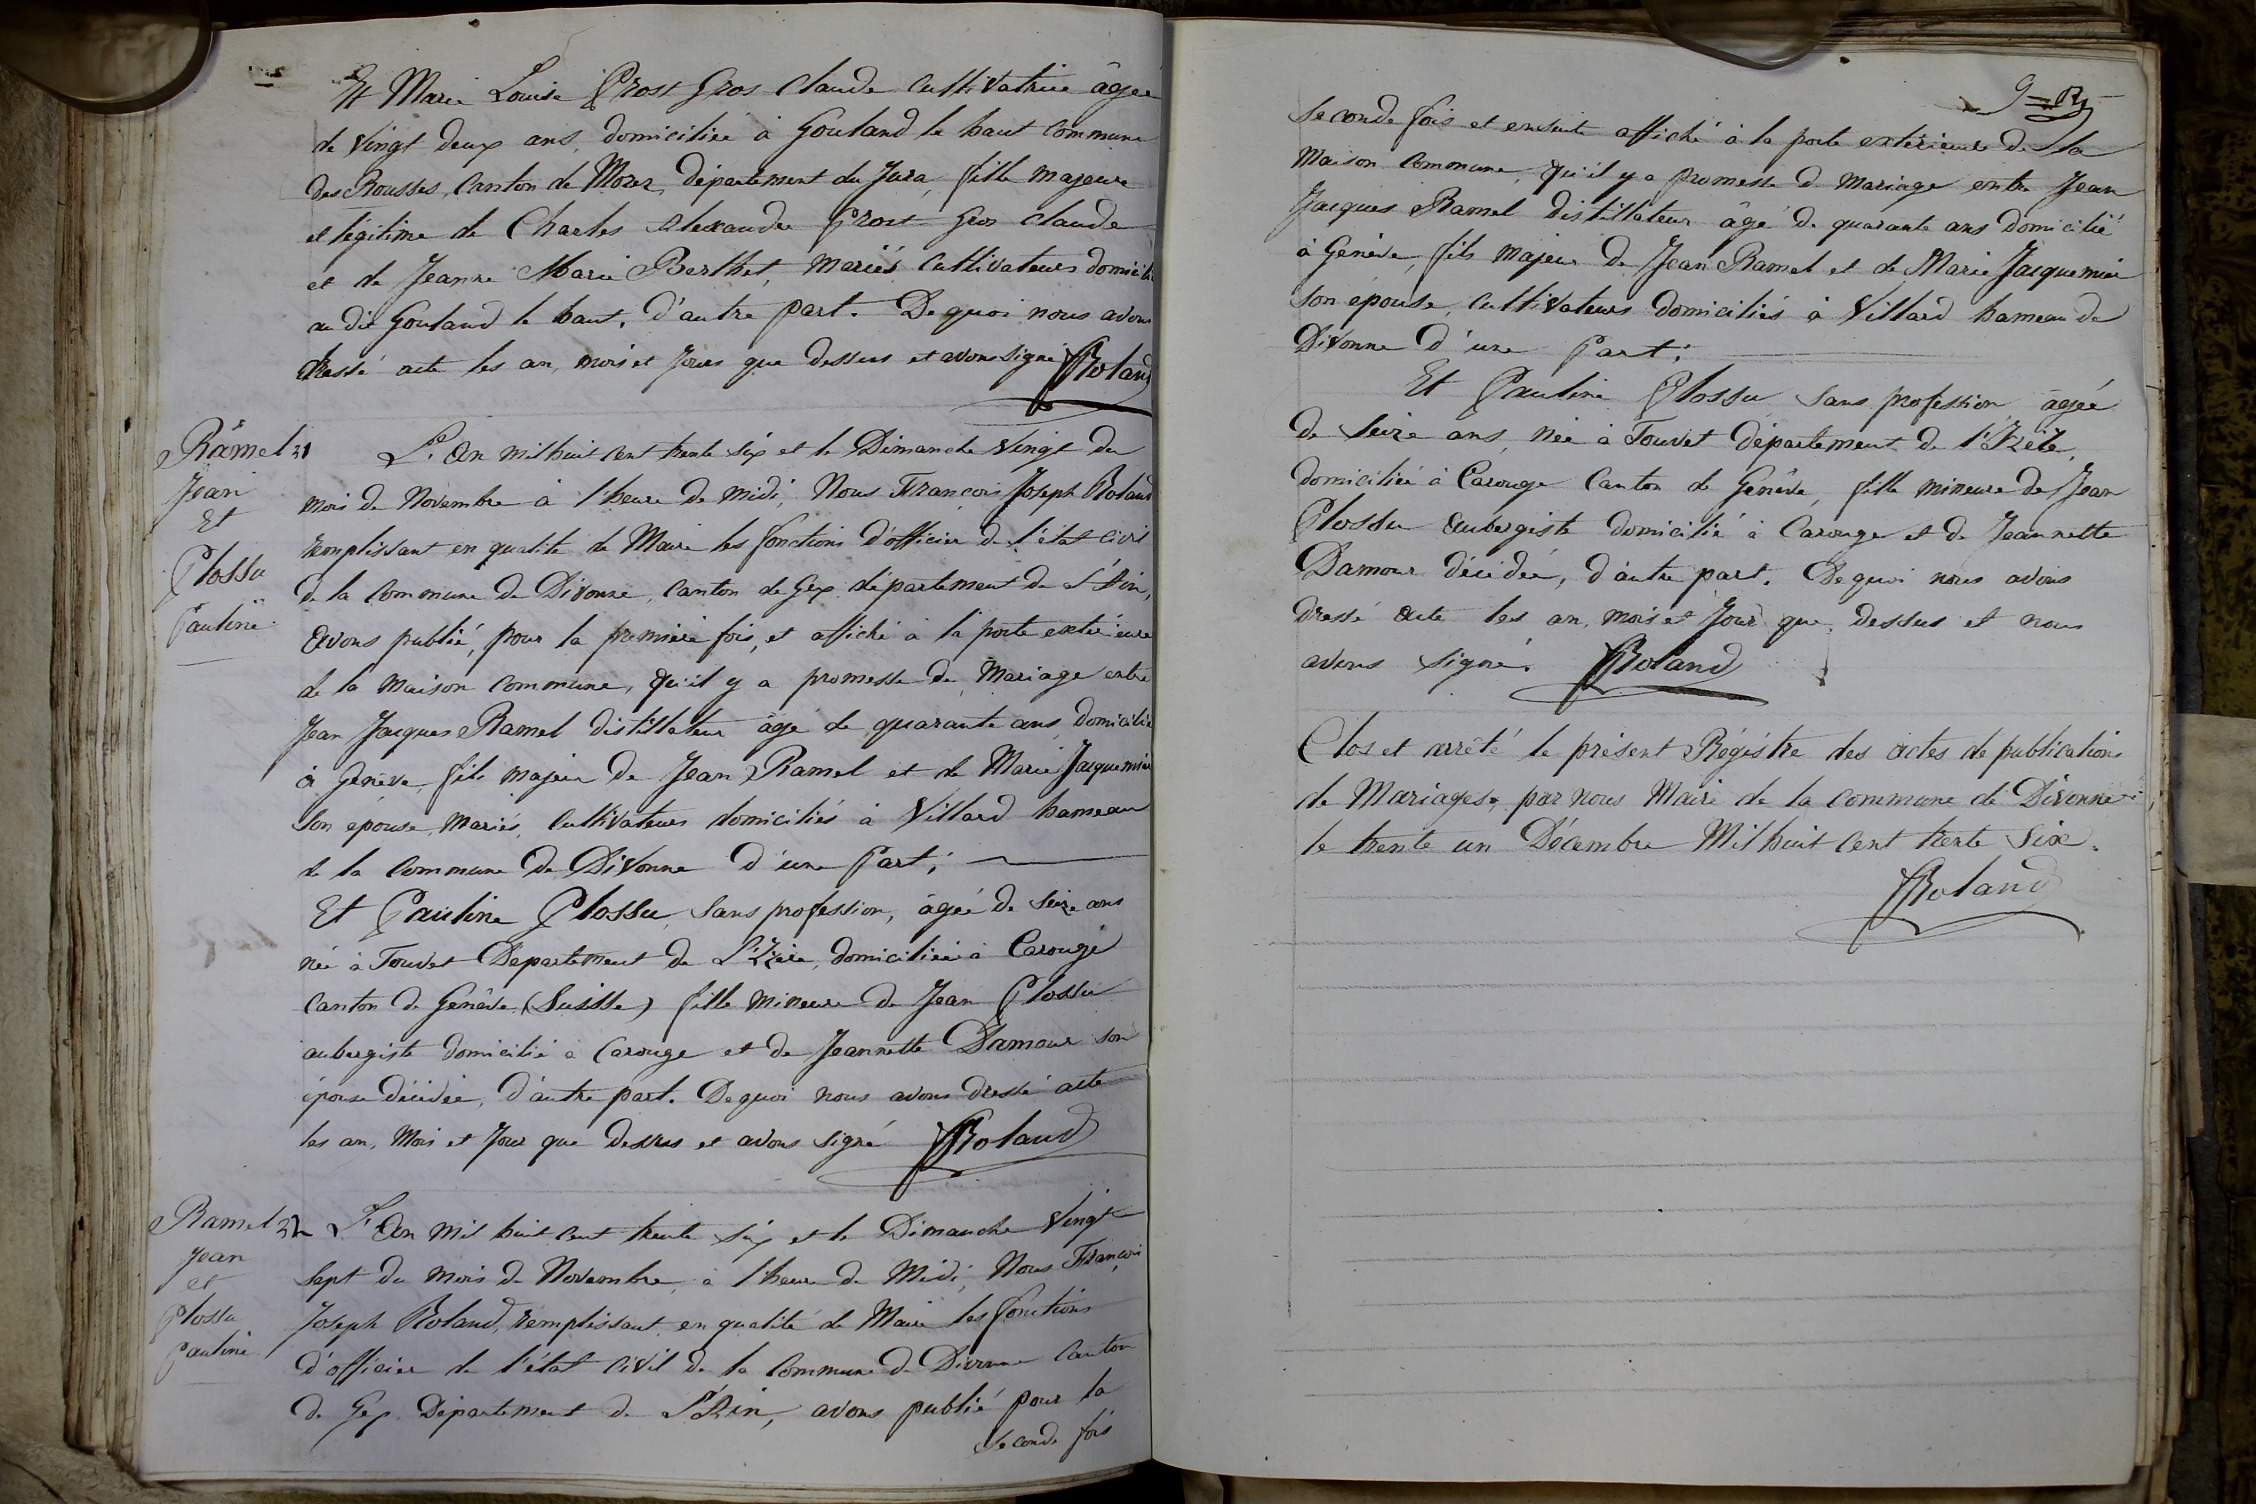 Et Marie Louise Prost Gros Claude cultivatrice âgée
de vingt deux ans, domiciliée à Gouland le haut commune
des Rousses, canton de Morez, département du Jura, fille majeure
et légitime de Charles Alexandre Prost Gros Claude
et de Jeanne Marie Berthet, mariés cultivateurs domicili
au dit Gouland le haut, d'autre part. De quoi nous avons
dressé acte les an, mois et jours que dessus et avons signé Roland
Ramel 31
Jean
Et
Plossu
Pauline
L'An mil huit cent trente six et le Dimanche vingt du
mois de Novembre à l'heure de midi, Nous François Joseph Roland
remplissant en qualité de Maire les fonctions d'officier de l'état civil
de la commune de Divonne, canton de Gex département de l'Ain,
Avons publié, pour la première fois, et affiché à la porte extérieure
de la maison commune, qu'il y a promesse de mariage entre
Jean Jacques Ramel distillateur âgé de quarante ans, domicilié
à Genève, fils majeur de Jean Ramel et de Marie Jacquemier
son épouse, mariés, cultivateurs domiciliés à Villard hameau
de la commune de Divonne d'une Part;
Et Pauline Plossu, sans profession, âgée de seize ans
née à Touvet Département de l'Izère, domiciliée à Carouge
canton de Genève (Suisse) fille mineure de Jean Plossu
aubergiste domicilié à Carouge et de Jeannette Damour son
épouse décédée, d'autre part. De quoi nous avons dressé acte
les an, mois et jour que dessus et avons signé Roland
Ramel 32
Jean
et
Plossu
Pauline
L'An mil huit cent trente six et le Dimanche vingt
sept du mois de Novembre, à l'heure de midi, Nous François
Joseph Roland, remplissant en qualité de Maire les fonctions
d'officier de l'état civil de la commune de Divonne canton
de Gex Département de l'Ain, avons publié pour la
seconde fois
seconde fois et ensuite affiché à la porte extérieure de la
maison commune, qu'il y a promesse de mariage entre Jean
Jacques Ramel distillateur âgé de quarante ans domicilié
à Genève, fils majeur de Jean Ramel et de Marie Jacquemier
son épouse, cultivateurs domiciliés à Villard hameau de
Divonne d'une Part;
Et Pauline Plossu sans profession âgée
de seize ans, née à Touvet département de l'Izère,
domiciliée à Carouge Canton de Genève, fille mineure de Jean
Plossu aubergiste domicilié à Carouge et de Jeannette
Damour décédée, d'autre part. De quoi nous avons
dressé acte les an, mois et jour que dessus et nous
avons signé. Roland
Clos et arrêté le présent Régistre des actes de publications
de Mariages, par nous Maire de la commune de Divonne
le trente un Décembre Mil huit cent trente six.
Roland